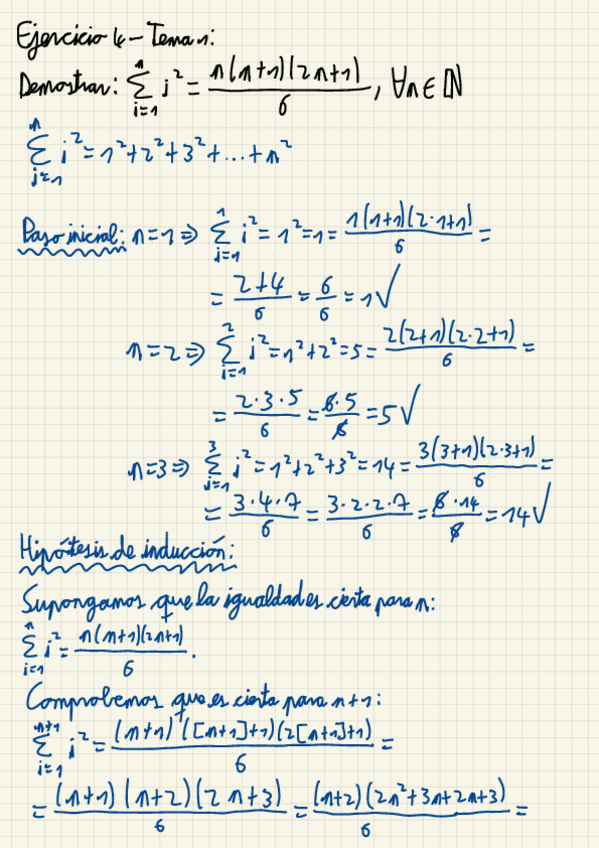 Ejercicio 4 - Tema 1:
Demostrar: \sum_{i=1}^{n} i^2 = \frac{n(n+1)(2n+1)}{6}, ∀n∈ℕ
\sum_{i=1}^{n} i^2 = 1^2+2^2+3^2+...+n^2
Paso inicial: n=1 ⇒ \sum_{i=1}^{1} i^2 = 1^2 = 1 = \frac{1(1+1)(2·1+1)}{6} =
= \frac{2+4}{6} = \frac{6}{6} = 1 ✓
n=2 ⇒ \sum_{i=1}^{2} i^2 = 1^2+2^2 = 5 = \frac{2(2+1)(2·2+1)}{6} =
= \frac{2·3·5}{6} = \frac{6·5}{6} = 5 ✓
n=3 ⇒ \sum_{i=1}^{3} i^2 = 1^2+2^2+3^2 = 14 = \frac{3(3+1)(2·3+1)}{6} =
= \frac{3·4·7}{6} = \frac{3·2·2·7}{6} = \frac{6·14}{6} = 14 ✓
Hipótesis de inducción:
Supongamos que la igualdad es cierta para n:
\sum_{i=1}^{n} i^2 = \frac{n(n+1)(2n+1)}{6}.
Comprobemos que es cierta para n+1:
\sum_{i=1}^{n+1} i^2 = \frac{(n+1)([n+1]+1)(2[n+1]+1)}{6} =
= \frac{(n+1)(n+2)(2n+3)}{6} = \frac{(n+2)(2n^2+3n+2n+3)}{6} =